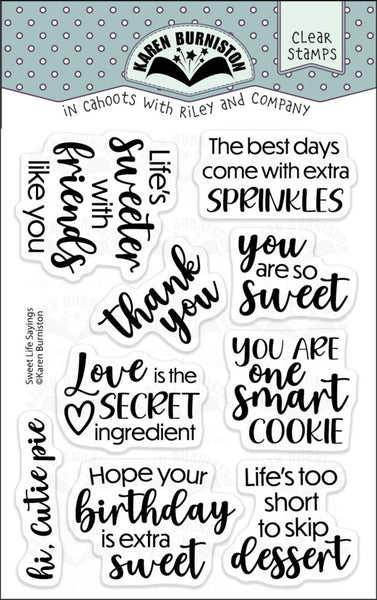 KAREN BURNISTON
CLEAR
STAMPS
in cahoots with Riley and Company
Life's
sweeter
with
friends
like you
The best days
come with extra
SPRINKLES
thank
you
you
are so
sweet
Sweet Life Sayings
©Karen Burniston
Love is the
SECRET
ingredient
YOU ARE
one
smart
COOKIE
hi, cutie pie
Hope your
birthday
is extra
sweet
Life's too
short
to skip
dessert